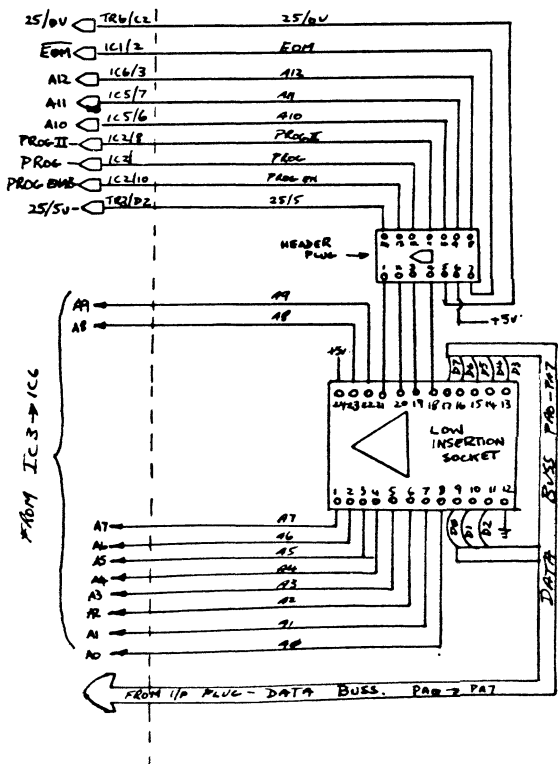 25/0V TR6/C2 25/0V
EOM IC1/2 EOM
A12 IC6/3 A12
A11 IC5/7 A11
A10 IC5/6 A10
PROG II IC2/8 PROG II
PROG IC2/ PROG
PROG ENB IC2/10 PROG EN
25/5V TR3/D2 25/5
HEADER
PLUG
+5V
A9 A9
A8 A8
+5V
D7 D6 D5 D4 D3
24 23 22 21 20 19 18 17 16 15 14 13
LOW
INSERTION
SOCKET
1 2 3 4 5 6 7 8 9 10 11 12
D0 D1 D2
A7 A7
A6 A6
A5 A5
A4 A4
A3 A3
A2 A2
A1 A1
A0 A0
FROM IC3 → IC6
DATA BUSS PA0-PA7
FROM I/P PLUG - DATA BUSS. PA0 - PA7